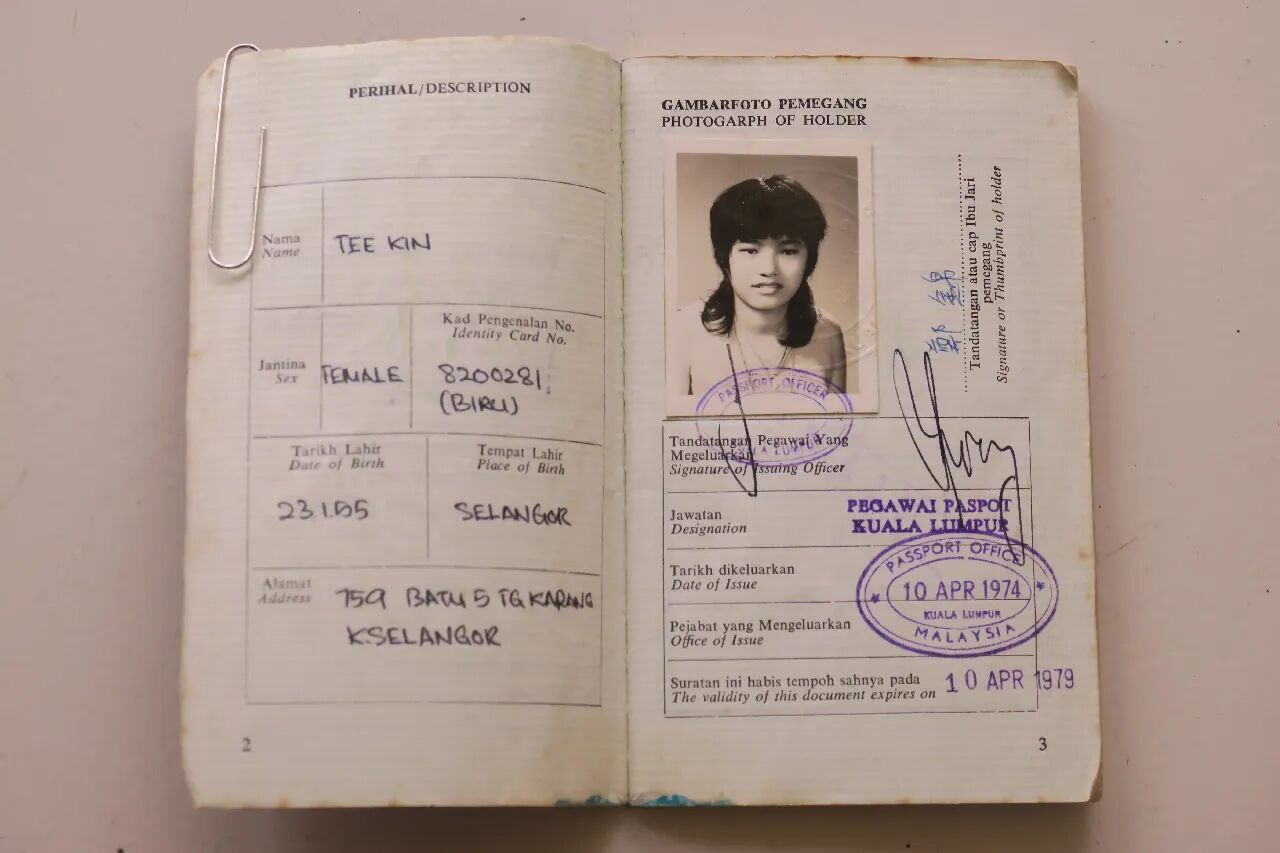 PERIHAL/DESCRIPTION
Nama
Name
TEE KIN
Jantina
Sex
FEMALE
Kad Pengenalan No.
Identity Card No.
8200281
(BIRU)
Tarikh Lahir
Date of Birth
23.1.55
Tempat Lahir
Place of Birth
SELANGOR
Alamat
Address
759 BATU 5 TG KARANG
K.SELANGOR
2
GAMBARFOTO PEMEGANG
PHOTOGARPH OF HOLDER
Tandatangan atau cap Ibu Jari
pemegang
Signature or Thumbprint of holder
PASSPORT OFFICER
KUALA LUMPUR
Tandatangan Pegawai Yang
Megeluarkan
Signature of Issuing Officer
Jawatan
Designation
PEGAWAI PASPOT
KUALA LUMPUR
Tarikh dikeluarkan
Date of Issue
PASSPORT OFFICE
10 APR 1974
KUALA LUMPUR
MALAYSIA
Pejabat yang Mengeluarkan
Office of Issue
Suratan ini habis tempoh sahnya pada
The validity of this document expires on
10 APR 1979
3